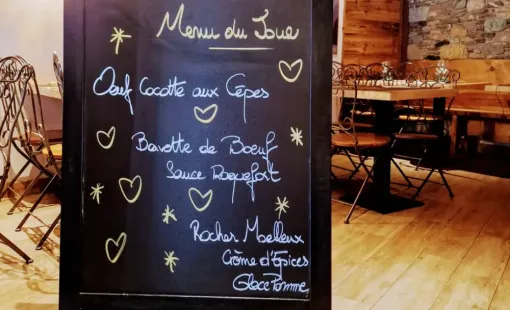 Menu du Jour
Oeuf Cocotte aux Cèpes
Bavette de Boeuf
Sauce Roquefort
Rocher Moelleux
Crème d'Epices
Glace Pomme